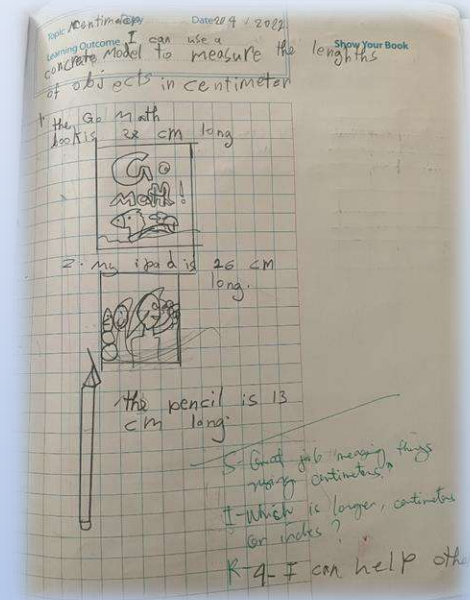 Topic centimeter Date 20/9/2022
Learning Outcome I can use a Show Your Book
concrete model to measure the lenghths
of objects in centimeter
1. the Go Math
book is 28 cm long
Go
Math!
2. my ipad is 26 cm
long.
the pencil is 13
cm long.
S-Great job measing things
using centimeters.
I-Which is longer, centimeters
or inches?
R-4-I can help othe